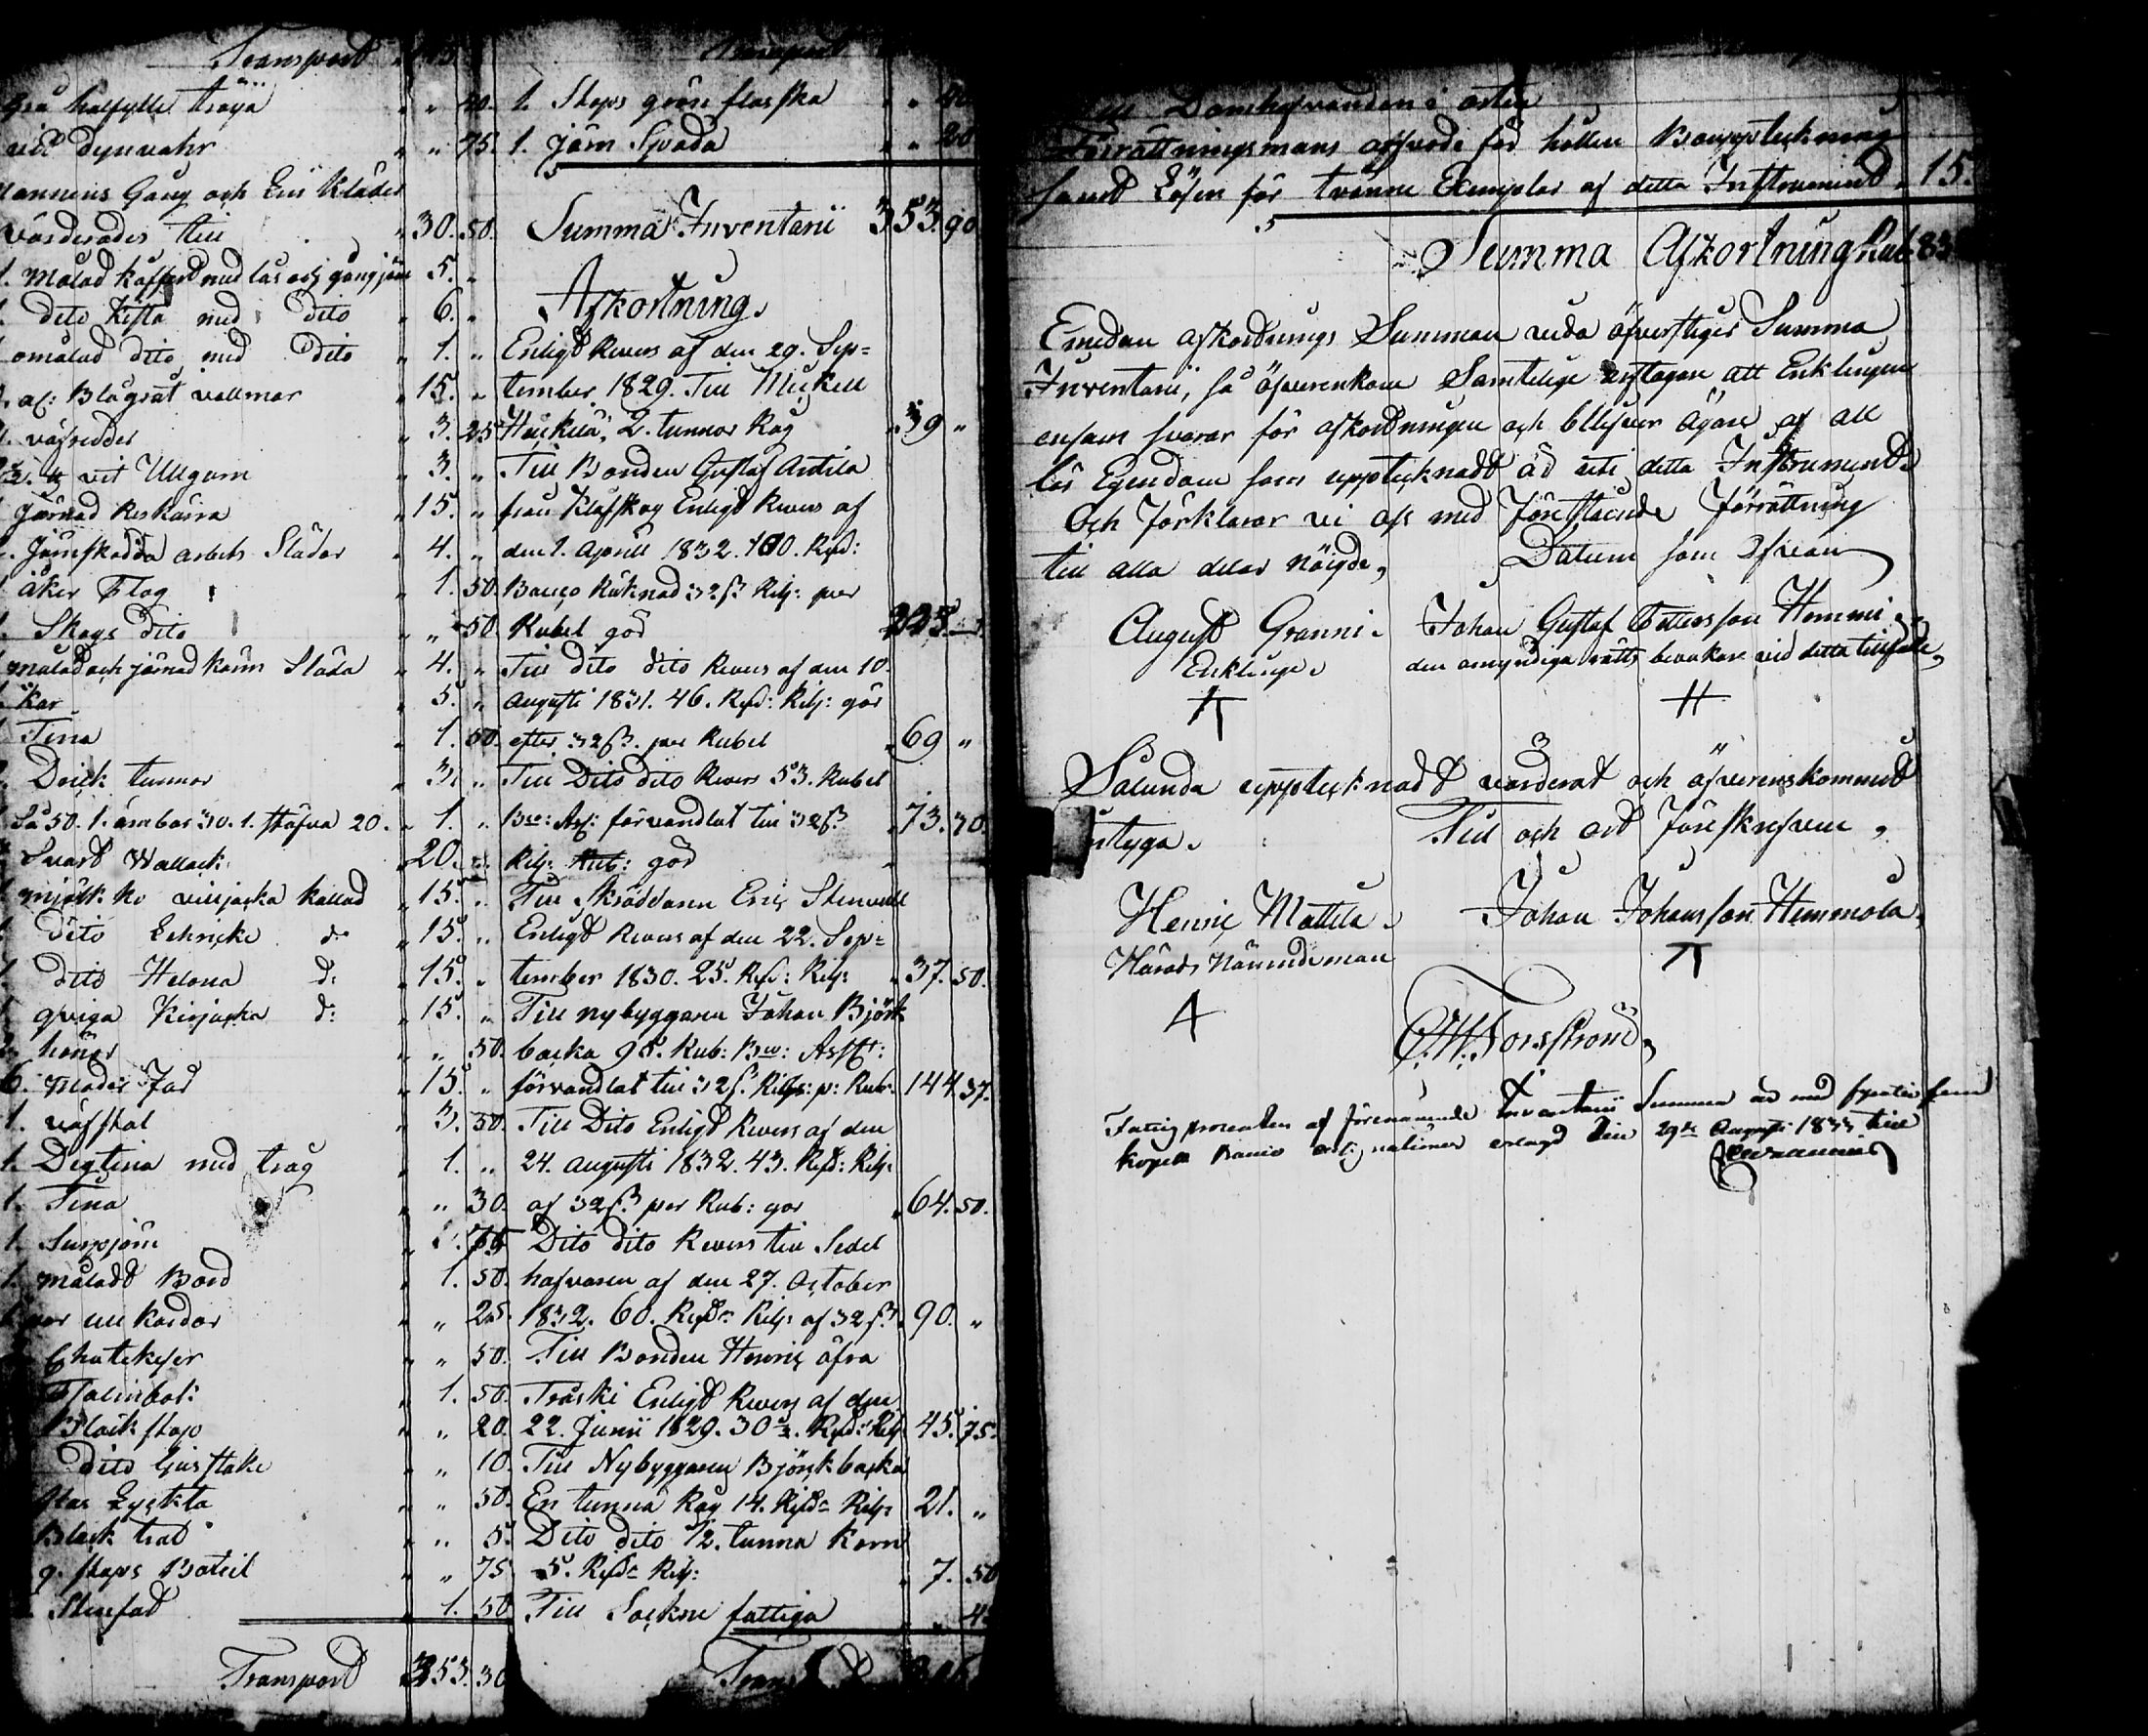 Transport
grå halfylle tröja " " 40.
vit dynvahr " " 75.
Mannens Gång och Lin Kläder
Värderades till " 30. 50.
1. Målad Koffert med lås och gångjärn 5. "
1. dito Kista med dito " 6. "
1 omålad dito med dito " 1. "
al: Blågråt vallmar " 15. "
1. väfredder " 3. 25
℔ vit Ullgarn " 3. "
Järnad Reskärra " 15. "
Järnskodda arbets Slädor " 4. "
1 åker Plog " 1. 50.
1. Skogs dito " " 50
1 målad och järnad Karm Släda " 4. "
1 Kar " 5. "
1 Tina " 1. 50.
2. Drick tunnor " 3. "
1 Så 50. 1. ämbar 30. 1. stäfva 20. " 1. "
1 Svart Wallack " 20. "
1 mjölk ko villjacka kallad " 15. "
1. dito Lehricke d:o " 15. "
1. dito Helona d: " 15. "
1. qviga Kirjacka d: " 15. "
2. hönor " " 50.
6. Moder Får " 15. "
1. väfstol " 3. 50.
1. Degtina med tråg " 1. "
1. Tina " " 30.
1. Supjärn
1. måladt Bord " 1. 50.
1 par ull kardor " " 25.
Chatekeser " " 50.
" 1. 50.
Bläck stop " " 20.
Dito ljusstake " " 10.
Lyckta " " 50.
Bläck trat " " 5.
stops Boteil " " 75
Stenfat " 1. 50
Transport 353. 30
Transport
1. Stops grön flaska " " 40
1. Järn Spada " " 20
Summa Inventarii 353. 90
Afkortning.
Enligt Revers af den 29. Sep=
tember 1829. Till Mickell
Huckila, 2. tunnor Råg " 39 "
Till Bonden Gustaf Antila
från Klåfskog Enligt Revers af
den 1. Aprill 1832. 100. Rysd:
Banco Räknad 32 ß Rikg: per
Rubel gör 225. —
Till dito dito Revers af den 10.
Augusti 1831. 46. Rxd: Rikg: gör
efter 32 ß. per Rubel " 69 "
Till Dito dito Revers 53. Rubel
B:co: Ass: förvandlat till 32 ß " 73. 30.
Rikg: Rub: gör
Till Skräddaren Eric Stenvall
Enligt Revers af den 22. Sep=
tember 1830. 25. Rxd: Rikg: " 37. 50.
Till nybyggaren Johan Björk
backa 98. Rub: B:co: Asst:
förvandlat till 32 ß. Rikgs: p: Rub: 144. 37.
Till Dito Enligt Revers af den
24. Augusti 1832. 43. Rxd: Rikg:
af 32 ß per Rub: gör " 64. 50.
Dito dito Revers till Sedel
hafvaren af den 27. October
1832. 60. Rxdr Rikg: af 32 ß. 90. "
Till Bonden Henric öfra
Träski Enligt Revers af den
22. Junii 1829. 30½. Rxd: Rikg 45. 75.
Till Nybyggaren Björckbacka
En tunna Råg 14. Rxdr Rikg: 21. "
Dito dito ½. tunna Korn
5. Rxdr Rikg: " 7. 50
Till Sockne fattiga
Till Domhafvanden i orten
Förrättningsmans arfvode för hållen Bouppteckning
samt Lösen för tvänne Exemplar af detta Instrument " 15.
Summa Afkortning Rub
Emedan afkortnings Summan vida öfverstiger Summa
Inventarii, så öfverenkom Samtelige arftagare att Enklingen
ensam svarar för afkortningen och blifver Ägare af all
lös Egendom som upptecknadt är uti detta Instrument.
Och förklarar vi oss med Förestående förrättning
till alla delar nöigde, Datum som Ofvan
August Granni. Johan Gustaf Pettersson Hemmi,
Enklinge. den omyndiga rätts bevakare vid detta tillfälle,
Sålunda upptecknadt värderat och öfverenskommit
intyga. Tid och ort föreskrefven.
Henric Mattila. Johan Johansson Hemmola.
Härads Nämndeman
Forsström
Fattig procenten af förenämnde Inventarii Summa är med fyratio fem
kopek Banco assignationer erlagd den 29de Augusti 1833 till